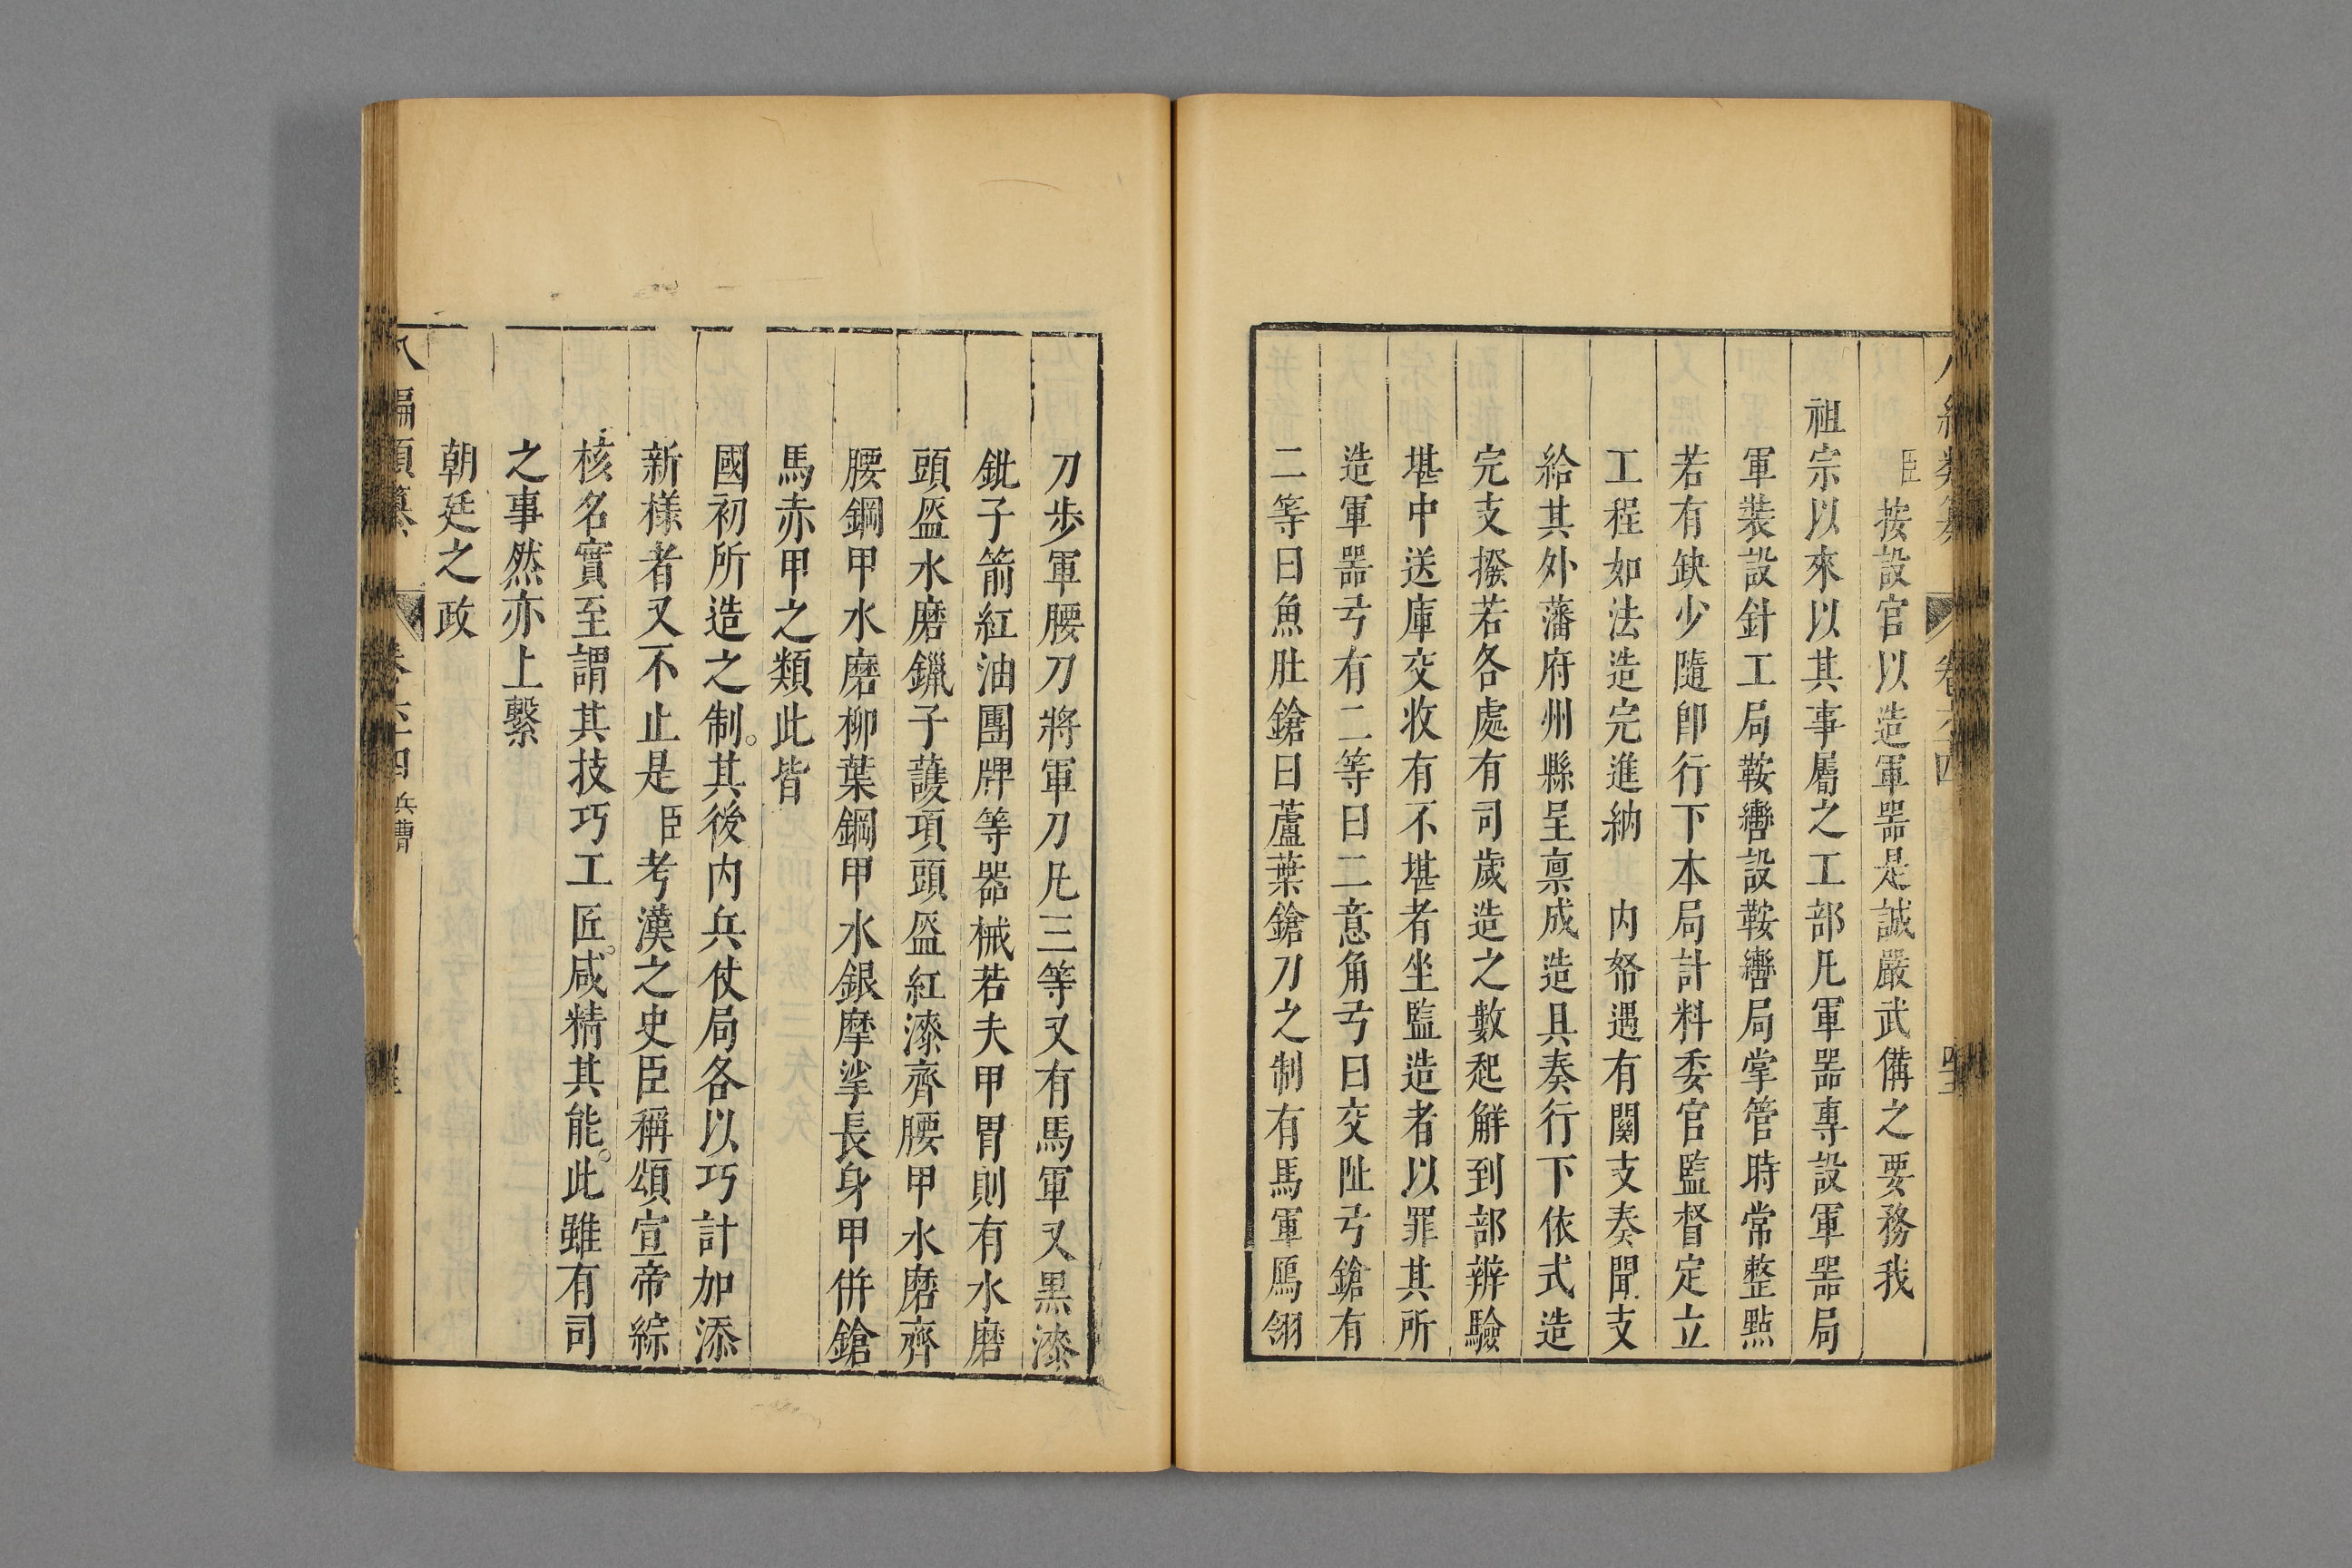 臣按設官以造軍器是誠嚴武備之要務我
祖宗以來以其事屬之工部凡軍器專設軍器局
軍裝設針工局鞍轡設鞍轡局掌管時常整點
若有缺少隨即行下本局計料委官監督定立
工程如法造完進納 内帑遇有關支奏聞支
給其外藩府州縣呈禀成造具奏行下依式造
完支撥若各處有司歲造之數起解到部辨驗
堪中送庫交收有不堪者坐監造者以罪其所
造軍器弓有二等曰二意角弓曰交阯弓鎗有
二等曰魚肚鎗曰蘆葉鎗刀之制有馬軍鴈翎
刀步軍腰刀將軍刀凡三等又有馬軍叉黒漆
鈚子箭紅油團牌等器械若夫甲胄則有水磨
頭盔水磨鑞子護項頭盔紅漆齊腰甲水磨齊
腰鋼甲水磨柳葉鋼甲水銀摩挲長身甲併鎗
馬赤甲之類此皆
國初所造之制。其後内兵仗局各以巧計加添
新様者又不止是臣考漢之史臣稱頌宣帝綜
核名實至謂其技巧工匠。咸精其能。此雖有司
之事然亦上繫
朝廷之政
八編類纂 卷六十四 兵曹